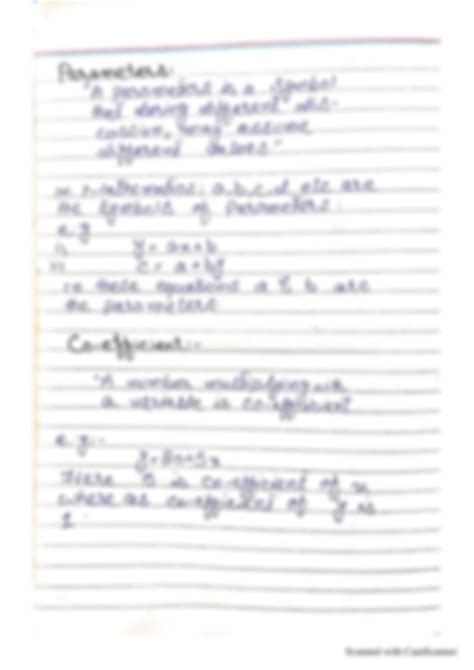 Parameters.
"A parameters is a symbol
that during different dis-
cussion, may assume
different values"
In mathematics; a, b, c, d etc are
the symbols of parameters.
e.g
i, y = ax+b
ii c = a + by
in these equations a & b are
the parameters
Co-efficient:-
"A number multiplying with
a variable is co-efficient
e.g:-
Here 5 is co-efficient of x
where as co-efficient of y is
1
Scanned with CamScanner